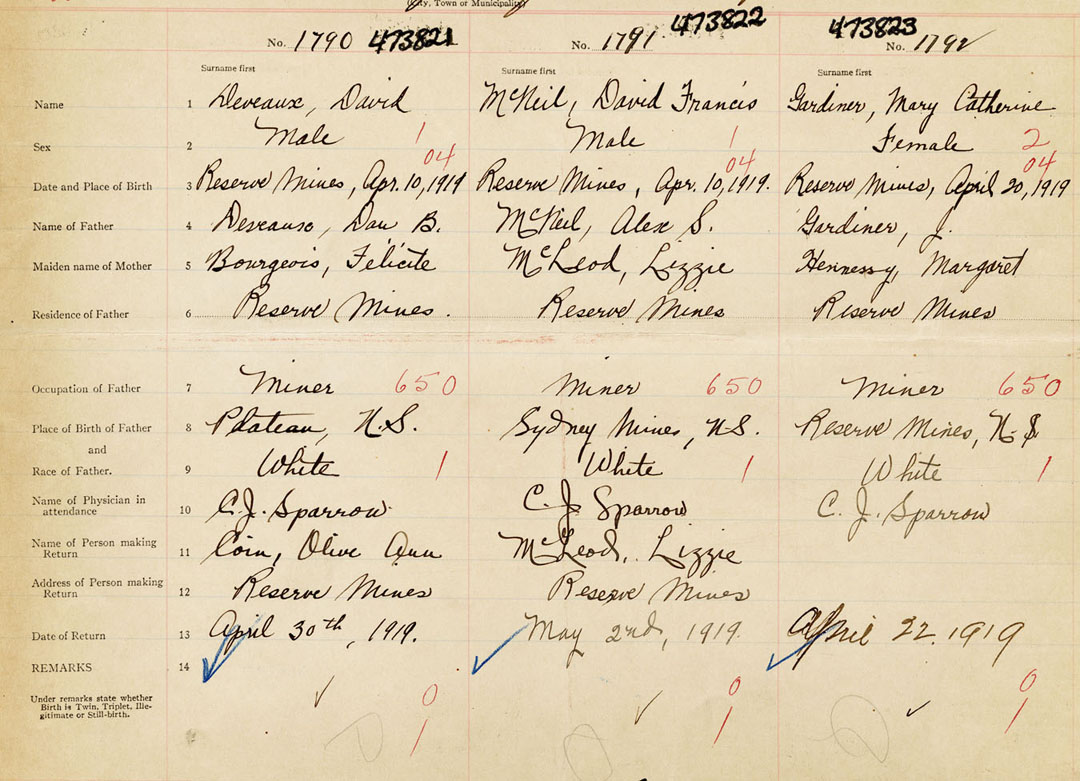 (City, Town or Municipality)
No. 1790 473821 No. 1791 473822 473823 No. 1792
Surname first Surname first Surname first
Name 1 Deveaux, David McNeil, David Francis Gardiner, Mary Catherine
Sex 2 Male 1 Male 1 Female 2
04 04 04
Date and Place of Birth 3 Reserve Mines, Apr. 10, 1919 Reserve Mines, Apr. 10, 1919. Reserve Mines, April 20, 1919
Name of Father 4 Deveaux, Dan B. McNeil, Alex S. Gardiner, J.
Maiden name of Mother 5 Bourgeois, Félicite McLeod, Lizzie Hennessy, Margaret
Residence of Father 6 Reserve Mines. Reserve Mines Reserve Mines
Occupation of Father 7 Miner 650 Miner 650 Miner 650
Place of Birth of Father 8 Plateau, N.S. Sydney Mines, N.S. Reserve Mines, N.S
and
Race of Father. 9 White 1 White 1 White 1
Name of Physician in
attendance 10 C.J. Sparrow C. J. Sparrow C. J. Sparrow
Name of Person making
Return 11 Olive Ann McLeod, Lizzie
Address of Person making
Return 12 Reserve Mines Reserve Mines
Date of Return 13 April 30th, 1919. May 2nd, 1919. April 22. 1919
REMARKS 14
Under remarks state whether
Birth is Twin, Triplet, Ille-
gitimate or Still-birth.
0 0 0
1 1 1